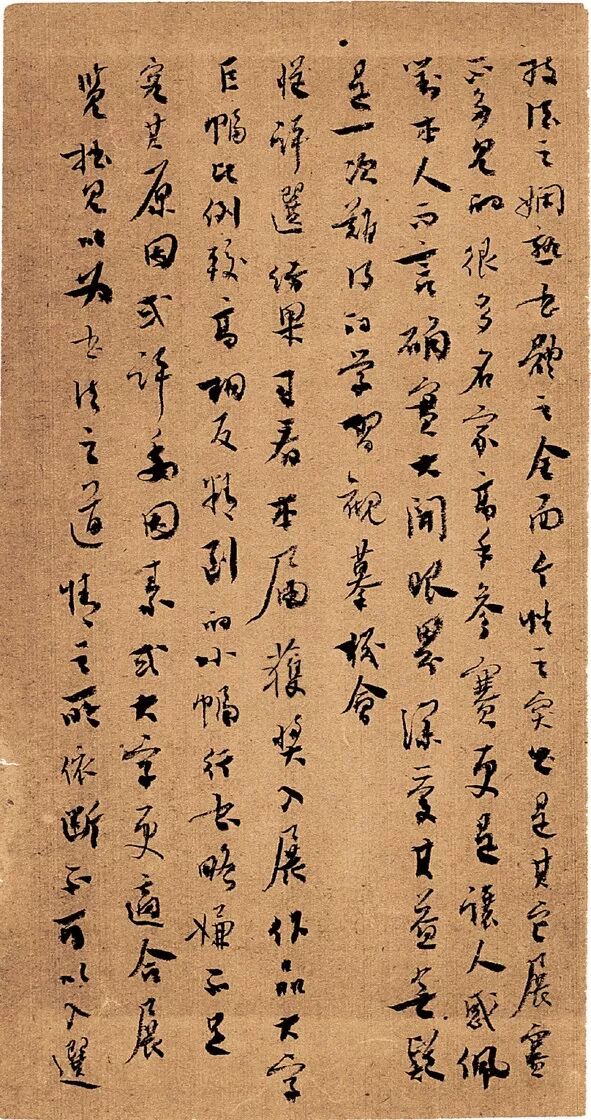 技法之娴熟书体之全面个性之突出是其它展赛
所多见的很多名家高手参赛更是让人感佩
对本人而言确实大开眼界深受其益无疑
是一次难得的学习观摹机会
从评选结果可看本届获奖入展作品大字
巨幅比例较高相反精到的小幅行书略嫌不足
究其原因或评委因素或大字更适合展
览拙见以为书法之道情之所依断不可以入选